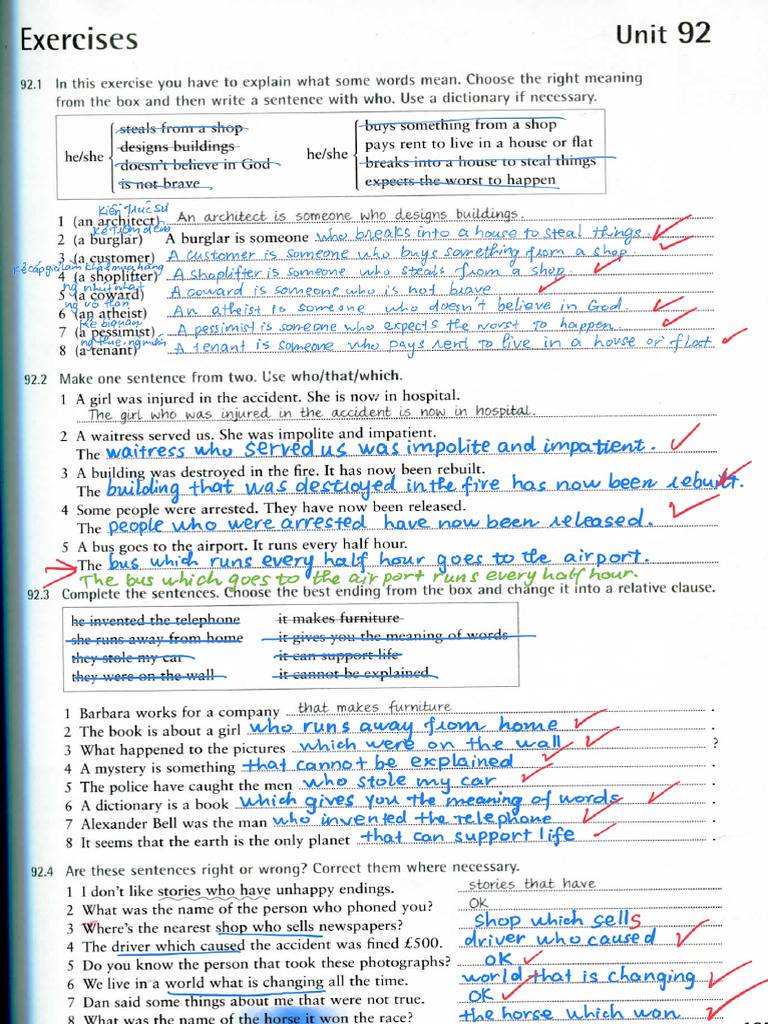 Exercises
Unit 92
92.1 In this exercise you have to explain what some words mean. Choose the right meaning
from the box and then write a sentence with who. Use a dictionary if necessary.
he/she
steals from a shop
designs buildings
doesn't believe in God
is not brave
he/she
buys something from a shop
pays rent to live in a house or flat
breaks into a house to steal things
expects the worst to happen
1 (an architect) An architect is someone who designs buildings.
2 (a burglar) A burglar is someone who breaks into a house to steal things.
3 (a customer) A customer is someone who buys something from a shop.
khách mua hàng
4 (a shoplifter) A shoplifter is someone who steals from a shop
5 (a coward) A coward is someone who is not brave
6 (an atheist) An atheist is someone who doesn't believe in God.
7 (a pessimist) A pessimist is someone who expects the worst to happen
8 (a tenant) A tenant is someone who pays rent to live in a house or flat
92.2 Make one sentence from two. Use who/that/which.
1 A girl was injured in the accident. She is now in hospital.
The girl who was injured in the accident is now in hospital.
2 A waitress served us. She was impolite and impatient.
The waitress who served us was impolite and impatient.
3 A building was destroyed in the fire. It has now been rebuilt.
The building that was destroyed in the fire has now been rebuilt.
4 Some people were arrested. They have now been released.
The people who were arrested have now been released.
5 A bus goes to the airport. It runs every half hour.
The bus which runs every half hour goes to the airport.
The bus which goes to the airport runs every half hour.
92.3 Complete the sentences. Choose the best ending from the box and change it into a relative clause.
he invented the telephone
she runs away from home
they stole my car
they were on the wall
it makes furniture
it gives you the meaning of words
it can support life
it cannot be explained
1 Barbara works for a company that makes furniture .
2 The book is about a girl who runs away from home .
3 What happened to the pictures which were on the wall ?
4 A mystery is something that cannot be explained .
5 The police have caught the men who stole my car .
6 A dictionary is a book which gives you the meaning of words .
7 Alexander Bell was the man who invented the telephone .
8 It seems that the earth is the only planet that can support life .
92.4 Are these sentences right or wrong? Correct them where necessary.
1 I don't like stories who have unhappy endings. stories that have
2 What was the name of the person who phoned you? OK
3 Where's the nearest shop who sells newspapers? shop which sells
4 The driver which caused the accident was fined £500. driver who caused
5 Do you know the person that took these photographs? OK
6 We live in a world what is changing all the time. world that is changing
7 Dan said some things about me that were not true. OK
8 What was the name of the horse it won the race? the horse which won